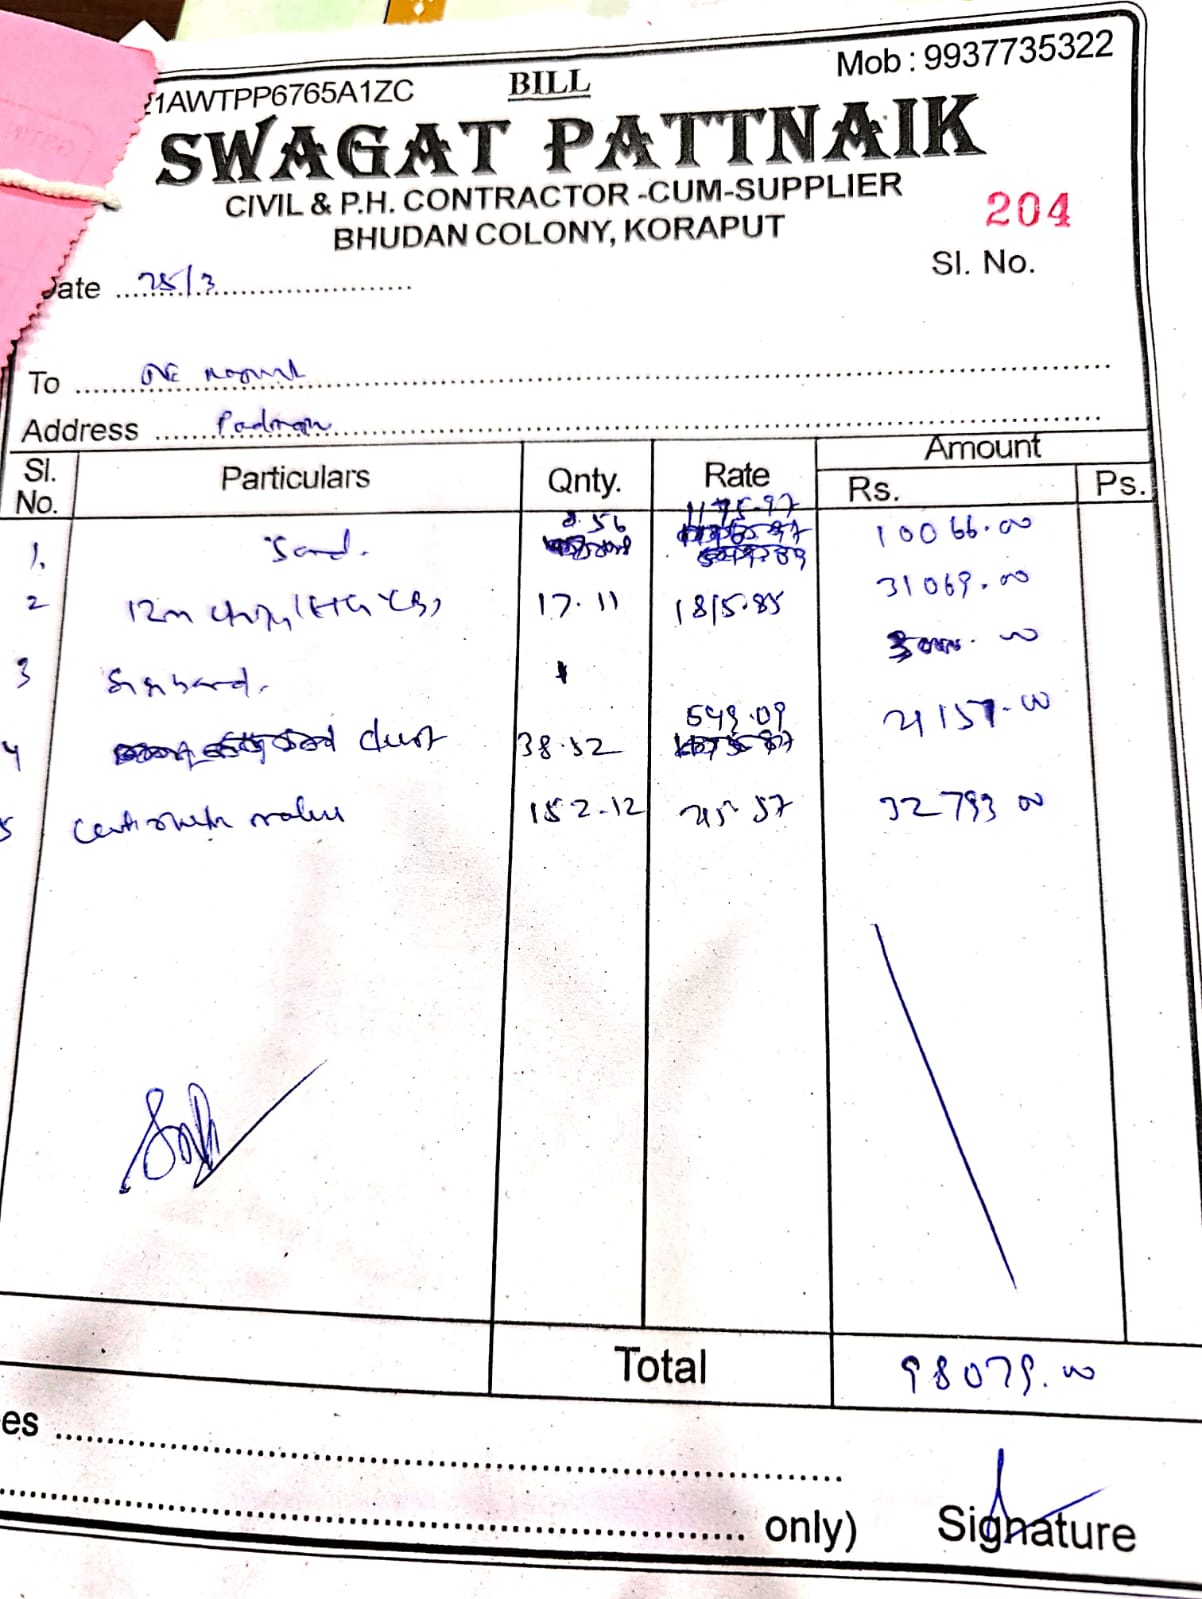 21AWTPP6765A1ZC BILL Mob : 9937735322
SWAGAT PATTNAIK
CIVIL & P.H. CONTRACTOR -CUM-SUPPLIER
BHUDAN COLONY, KORAPUT
204
Sl. No.
Date 25/3
To
Address
Sl. No. Particulars Qnty. Rate Amount
Rs. Ps.
1. Sand. 8.56 1175.97 10066.00
2 12m 17.11 1815.85 31069.00
3 Signboard. 1 3000.00
4 dust 38.52 549.09 21157.00
5 152.12 215.57 32793 00
Total 98079.00
es
only) Signature